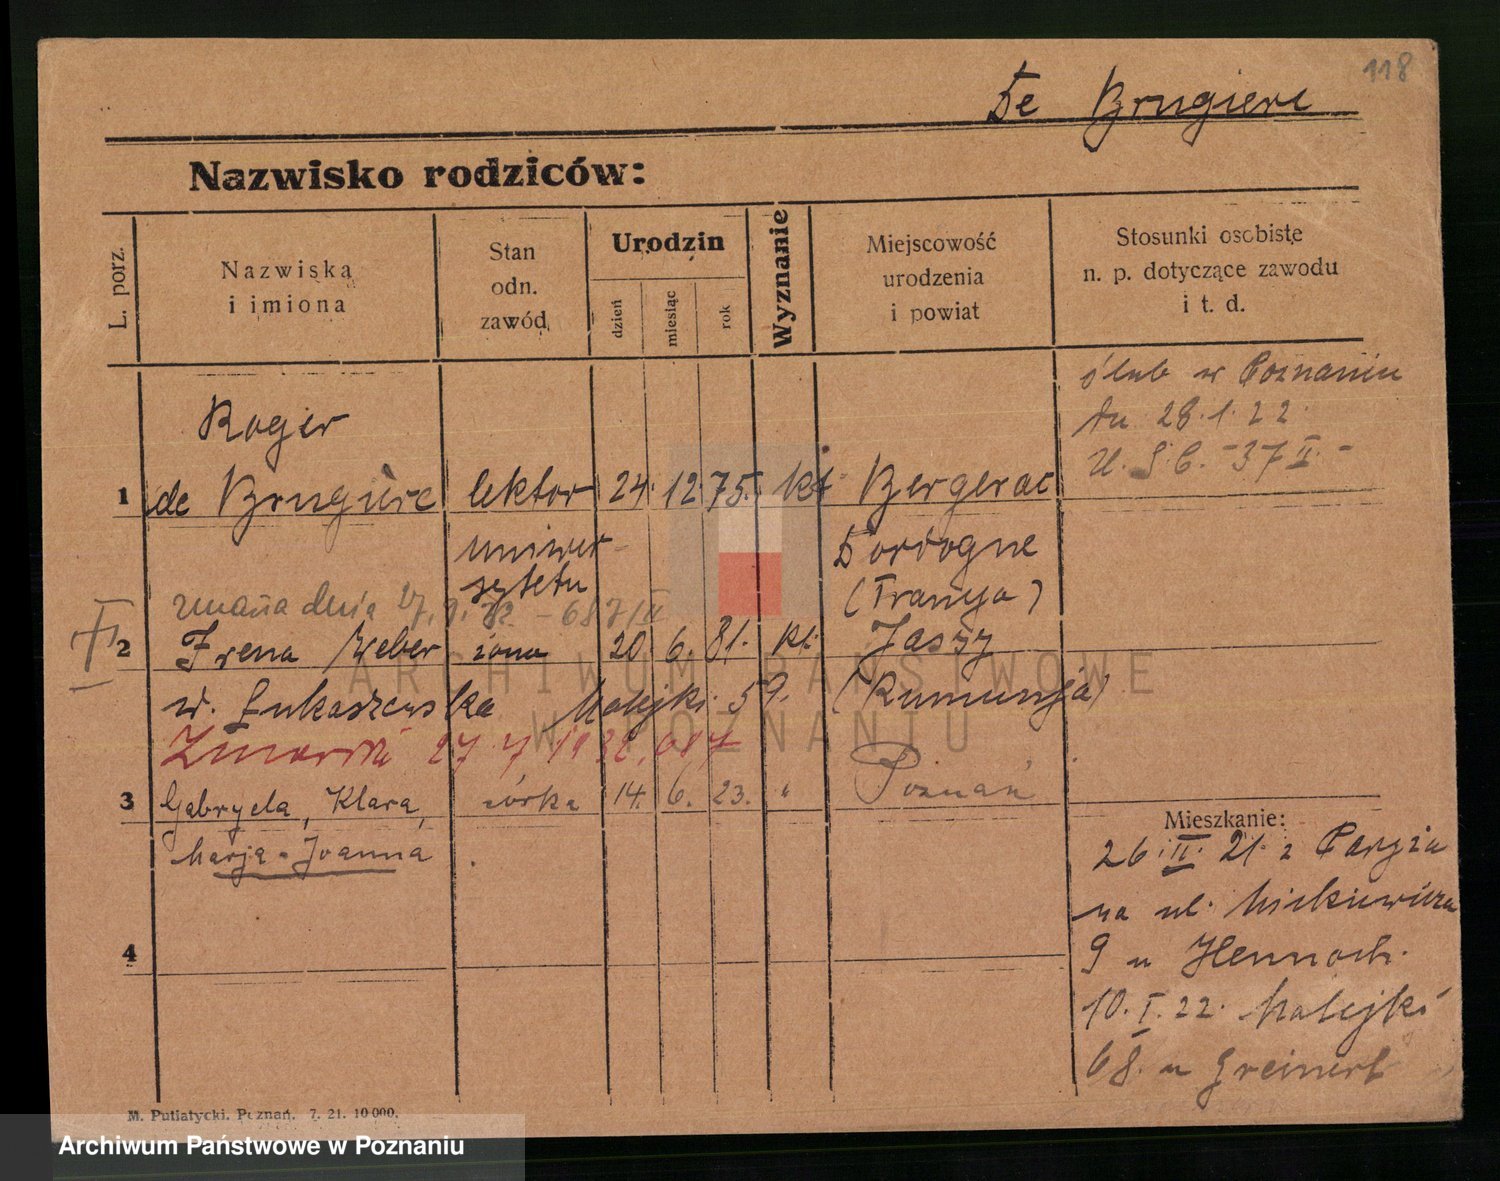 118
De Brugiere
Nazwisko rodziców:
L. porz.
Nazwiska
i imiona
Stan
odn.
zawód
Urodzin
dzień
miesiąc
rok
Wyznanie
Miejscowość
urodzenia
i powiat
Stosunki osobiste
n. p. dotyczące zawodu
i t. d.
ślub w Poznaniu
dn 28.1.22.
U.S.C. - 37 II. -
Roger
1 de Brugière lektor 24. 12. 75. kt Bergerac
uniwer-
sytetu
Dordogne
(Francja)
zmarła dnia 27.7.32. - 687/II
2 Irena Weber żona 20. 6. 81. kt. Jassy
w. Łukaszewska Matejki 59. (Rumunja)
Zmarła 27 7 1932, 687
3 Gabryela, Klara, córka 14. 6. 23. " Poznań
Marja-Joanna
4
Mieszkanie:
26.II.21. z Paryża
na ul. Mickiewicza
9 u Hennoch.
10.I.22. Matejki
68. u Greinert
M. Putiatycki, Poznań. 7. 21. 10 000.
ARCHIWUM PAŃSTWOWE
W POZNANIU
Archiwum Państwowe w Poznaniu